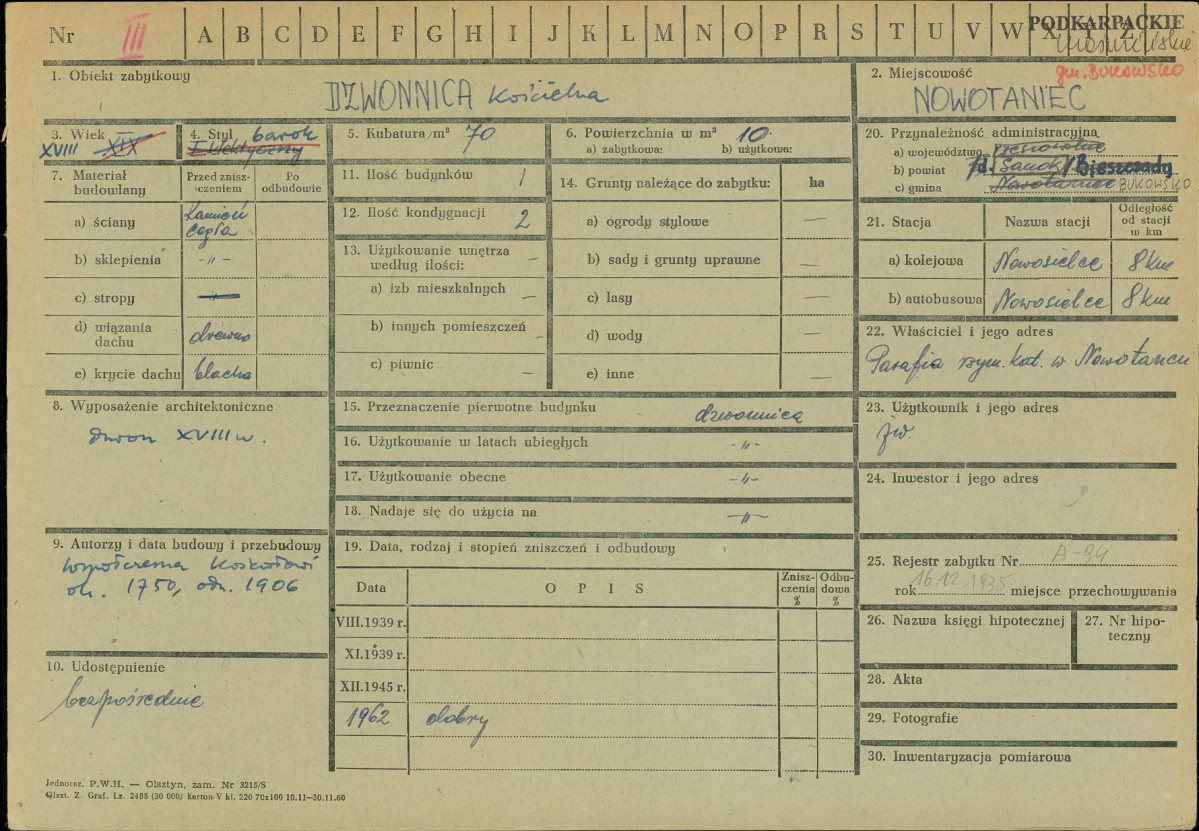 Nr III A B C D E F G H I J K L M N O P R S T U V W X Y Z
PODKARPACKIE
gm. BUKOWSKO
1. Obiekt zabytkowy
DZWONNICA kościelna
2. Miejscowość
NOWOTANIEC
3. Wiek
XVIII XIX
4. Styl barok
Eklektyczny
5. Kubatura/m³ 70
6. Powierzchnia w m² 10.
a) zabytkowa: b) użytkowa:
20. Przynależność administracyjna
a) województwo rzeszowskie
b) powiat /d. Sanok/ Bieszczady
c) gmina Nowotaniec BUKOWSKO
7. Materiał budowlany
Przed znisz-
czeniem
Po
odbudowie
a) ściany kamień
cegła
b) sklepienia -"-
c) stropy "
d) wiązania
dachu drewno
e) krycie dachu blacha
11. Ilość budynków 1
12. Ilość kondygnacji 2
13. Użytkowanie wnętrza
według ilości: —
a) izb mieszkalnych —
b) innych pomieszczeń -
c) piwnic —
14. Grunty należące do zabytku: ha
a) ogrody stylowe —
b) sady i grunty uprawne —
c) lasy —
d) wody —
e) inne —
21. Stacja Nazwa stacji Odległość
od stacji
w km
a) kolejowa Nowosielce 8 km
b) autobusowa Nowosielce 8 km
22. Właściciel i jego adres
Parafia rzym. kat. w Nowotańcu
8. Wyposażenie architektoniczne
dzwon XVIII w.
15. Przeznaczenie pierwotne budynku dzwonnica
16. Użytkowanie w latach ubiegłych -"-
17. Użytkowanie obecne -"-
18. Nadaje się do użycia na -"-
23. Użytkownik i jego adres
jw.
24. Inwestor i jego adres
9. Autorzy i data budowy i przebudowy
współczesna kościołowi
ok. 1750, odn. 1906
19. Data, rodzaj i stopień zniszczeń i odbudowy
Data O P I S Znisz-
czenia
% Odbu-
dowa
%
VIII.1939 r.
XI.1939 r.
XII.1945 r.
1962 dobry
25. Rejestr zabytku Nr A-94
rok 16.12.1935 miejsce przechowywania
26. Nazwa księgi hipotecznej
27. Nr hipo-
teczny
10. Udostępnienie
bezpośrednie
28. Akta
29. Fotografie
30. Inwentaryzacja pomiarowa
Jednoraz. P.W.H. — Olsztyn, zam. Nr 3215/S
Olszt. Z. Graf. Lz. 2485 (30 000) karton V kl. 220 70x100 10.11—30.11.60